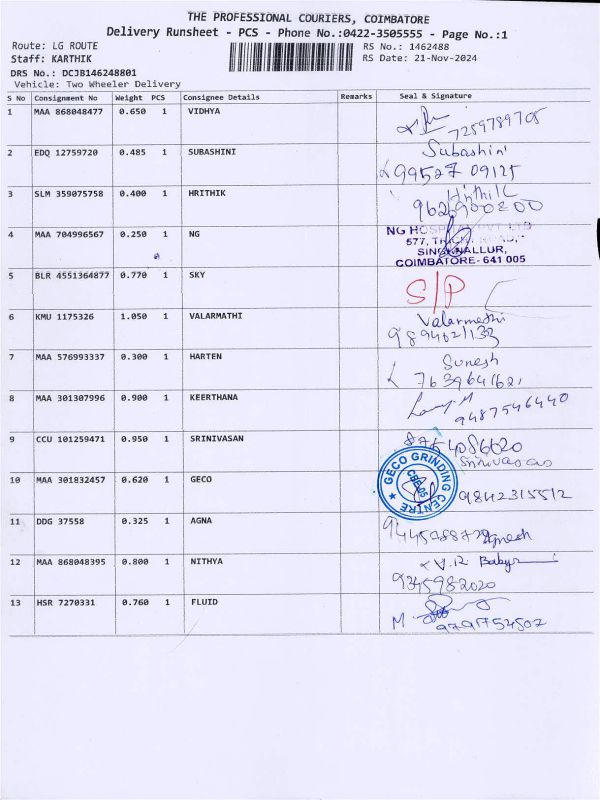 THE PROFESSIONAL COURIERS, COIMBATORE
Delivery Runsheet - PCS - Phone No.:0422-3505555 - Page No.:1
Route: LG ROUTE
RS No.: 1462488
Staff: KARTHIK
RS Date: 21-Nov-2024
DRS No.: DCJB146248801
Vehicle: Two Wheeler Delivery
S No Consignment No Weight PCS Consignee Details Remarks Seal & Signature
1 MAA 868048477 0.650 1 VIDHYA
7259789705
2 EDQ 12759720 0.485 1 SUBASHINI Subashini
99527 09125
3 SLM 359075758 0.400 1 HRITHIK Hrithik
4 MAA 704996567 0.250 1 NG NG HOSPITAL PVT LTD
577,
SINGANALLUR,
COIMBATORE- 641 005
5 BLR 4551364877 0.770 1 SKY S/P
6 KMU 1175326 1.050 1 VALARMATHI Valarmathi
7 MAA 576993337 0.300 1 HARTEN Suresh
7639641621
8 MAA 301307996 0.900 1 KEERTHANA
9487546440
9 CCU 101259471 0.950 1 SRINIVASAN 8754086620
Srinivasan
10 MAA 301832457 0.620 1 GECO GECO GRINDING CENTRE
CBE-05
9842315512
11 DDG 37558 0.325 1 AGNA
12 MAA 868048395 0.800 1 NITHYA V.R Baby
9345982020
13 HSR 7270331 0.760 1 FLUID
M
9791754507